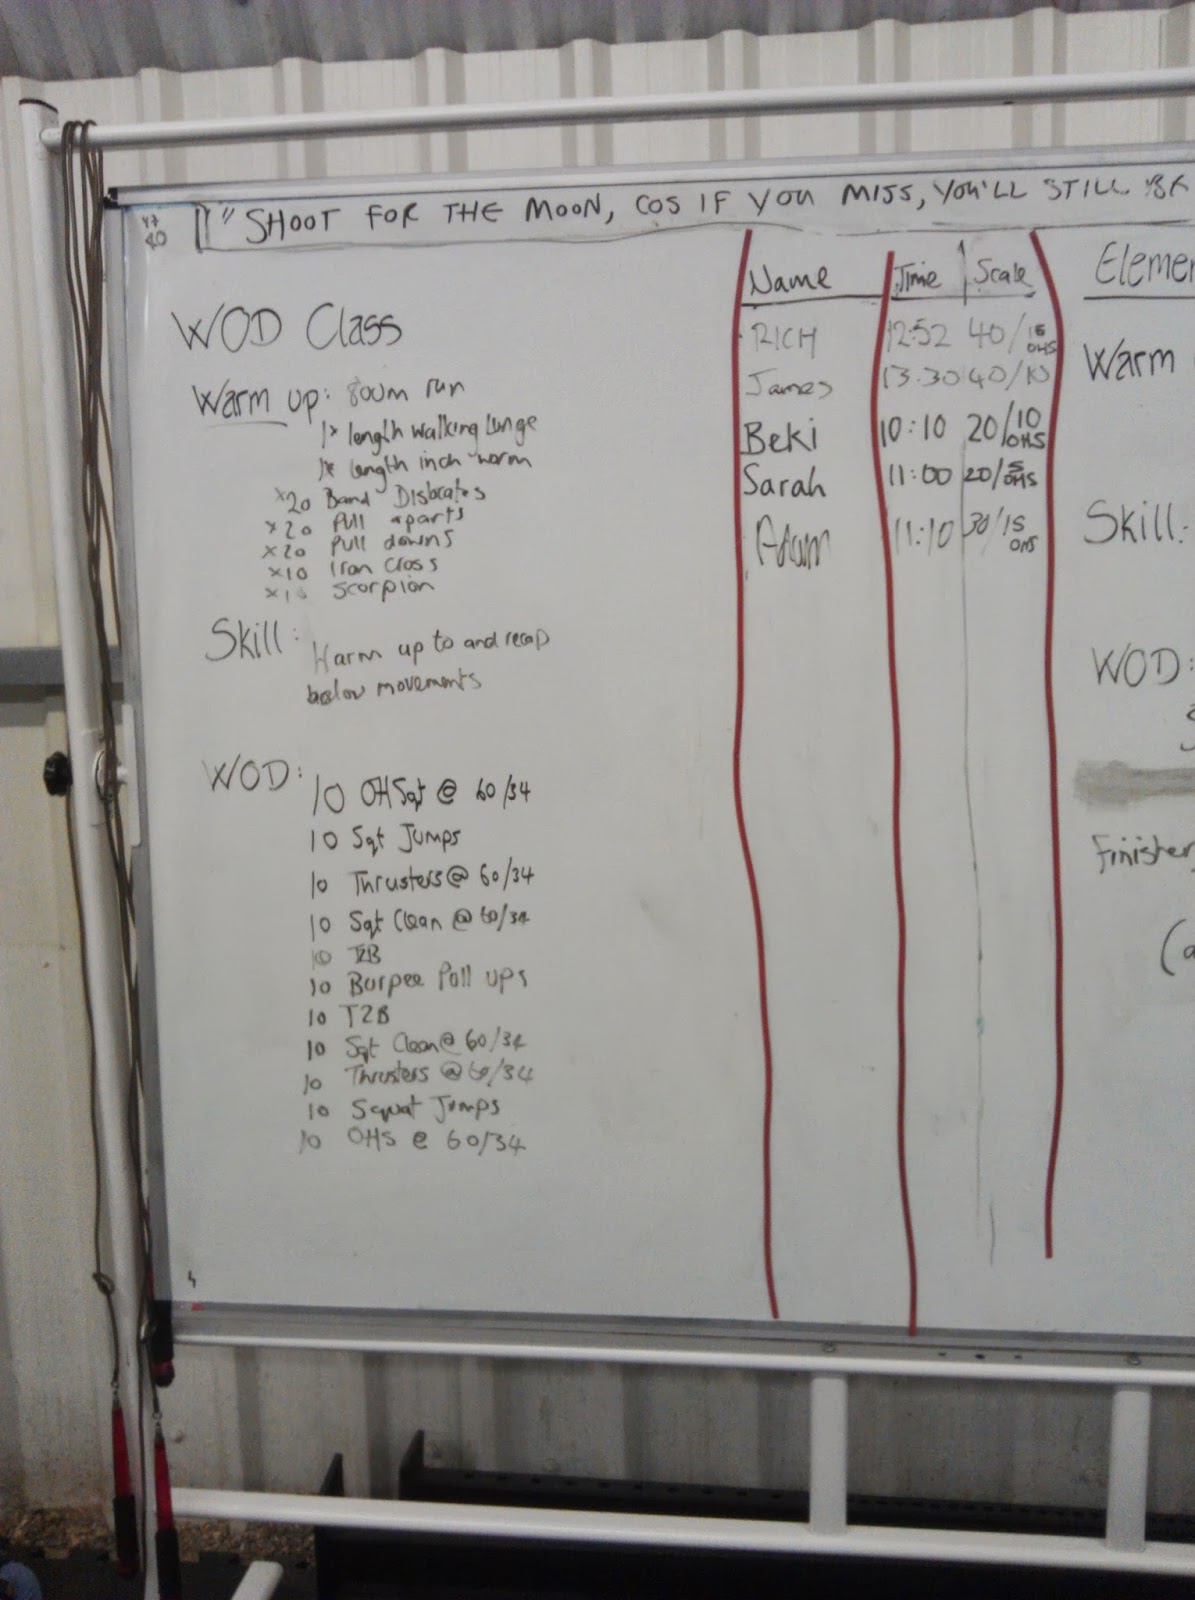 47
40
"SHOOT FOR THE MOON, COS IF YOU MISS, YOU'LL STILL
WOD Class
Warm up: 800m run
1x length walking lunge
1x length inch worm
x20 Band Dislocates
x20 Pull aparts
x20 Pull downs
x10 Iron Cross
x10 Scorpion
Skill: Warm up to and recap
below movements
WOD: 10 OHSqt @ 60/34
10 Sqt Jumps
10 Thrusters @ 60/34
10 Sqt Clean @ 60/34
10 T2B
10 Burpee Pull ups
10 T2B
10 Sqt Clean @ 60/34
10 Thrusters @ 60/34
10 Squat Jumps
10 OHS @ 60/34
Name Time Scale
RICH 12:52 40/15 OHS
James 13.30 40/10
Beki 10:10 20/10 OHS
Sarah 11:00 20/5 OHS
Adam 11:10 30/15 OHS
Elemen
Warm
Skill:
WOD:
Finisher
(a